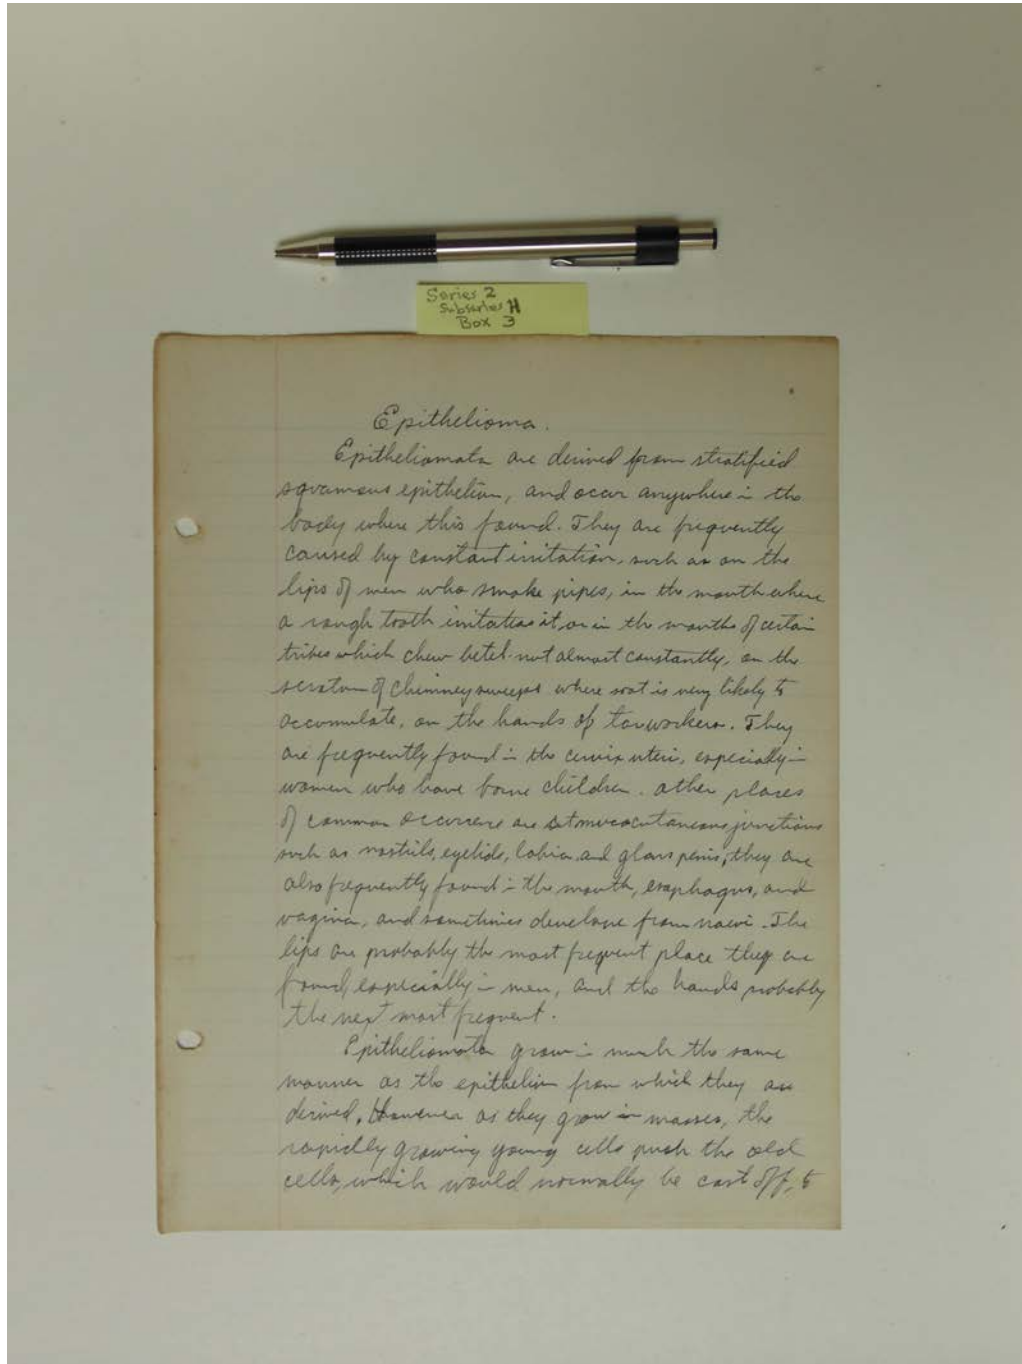 Series 2
Subseries H
Box 3
Epithelioma.
Epitheliomata are derived from stratified
squamous epithelium, and occur anywhere in the
body where this found. They are frequently
caused by constant irritation, such as on the
lips of men who smoke pipes, in the mouth where
a rough tooth irritates it or in the mouths of certain
tribes which chew betel-nut almost constantly, on the
scrotum of chimney sweeps where soot is very likely to
accumulate, on the hands of tarworkers. They
are frequently found in the cervix uteri, especially in
women who have borne children. Other places
of common occurrence are at mucocutaneous junctions
such as nostrils, eyelids, labia and glans penis, they are
also frequently found in the mouth, esophagus, and
vagina, and sometimes develope from naevi. The
lips are probably the most frequent place they are
found, especially in men, and the hands probably
the next most frequent.
Epitheliomata grow in much the same
manner as the epithelium from which they are
derived. However as they grow in masses, the
rapidly growing young cells push the old
cells, which would normally be cast off, to